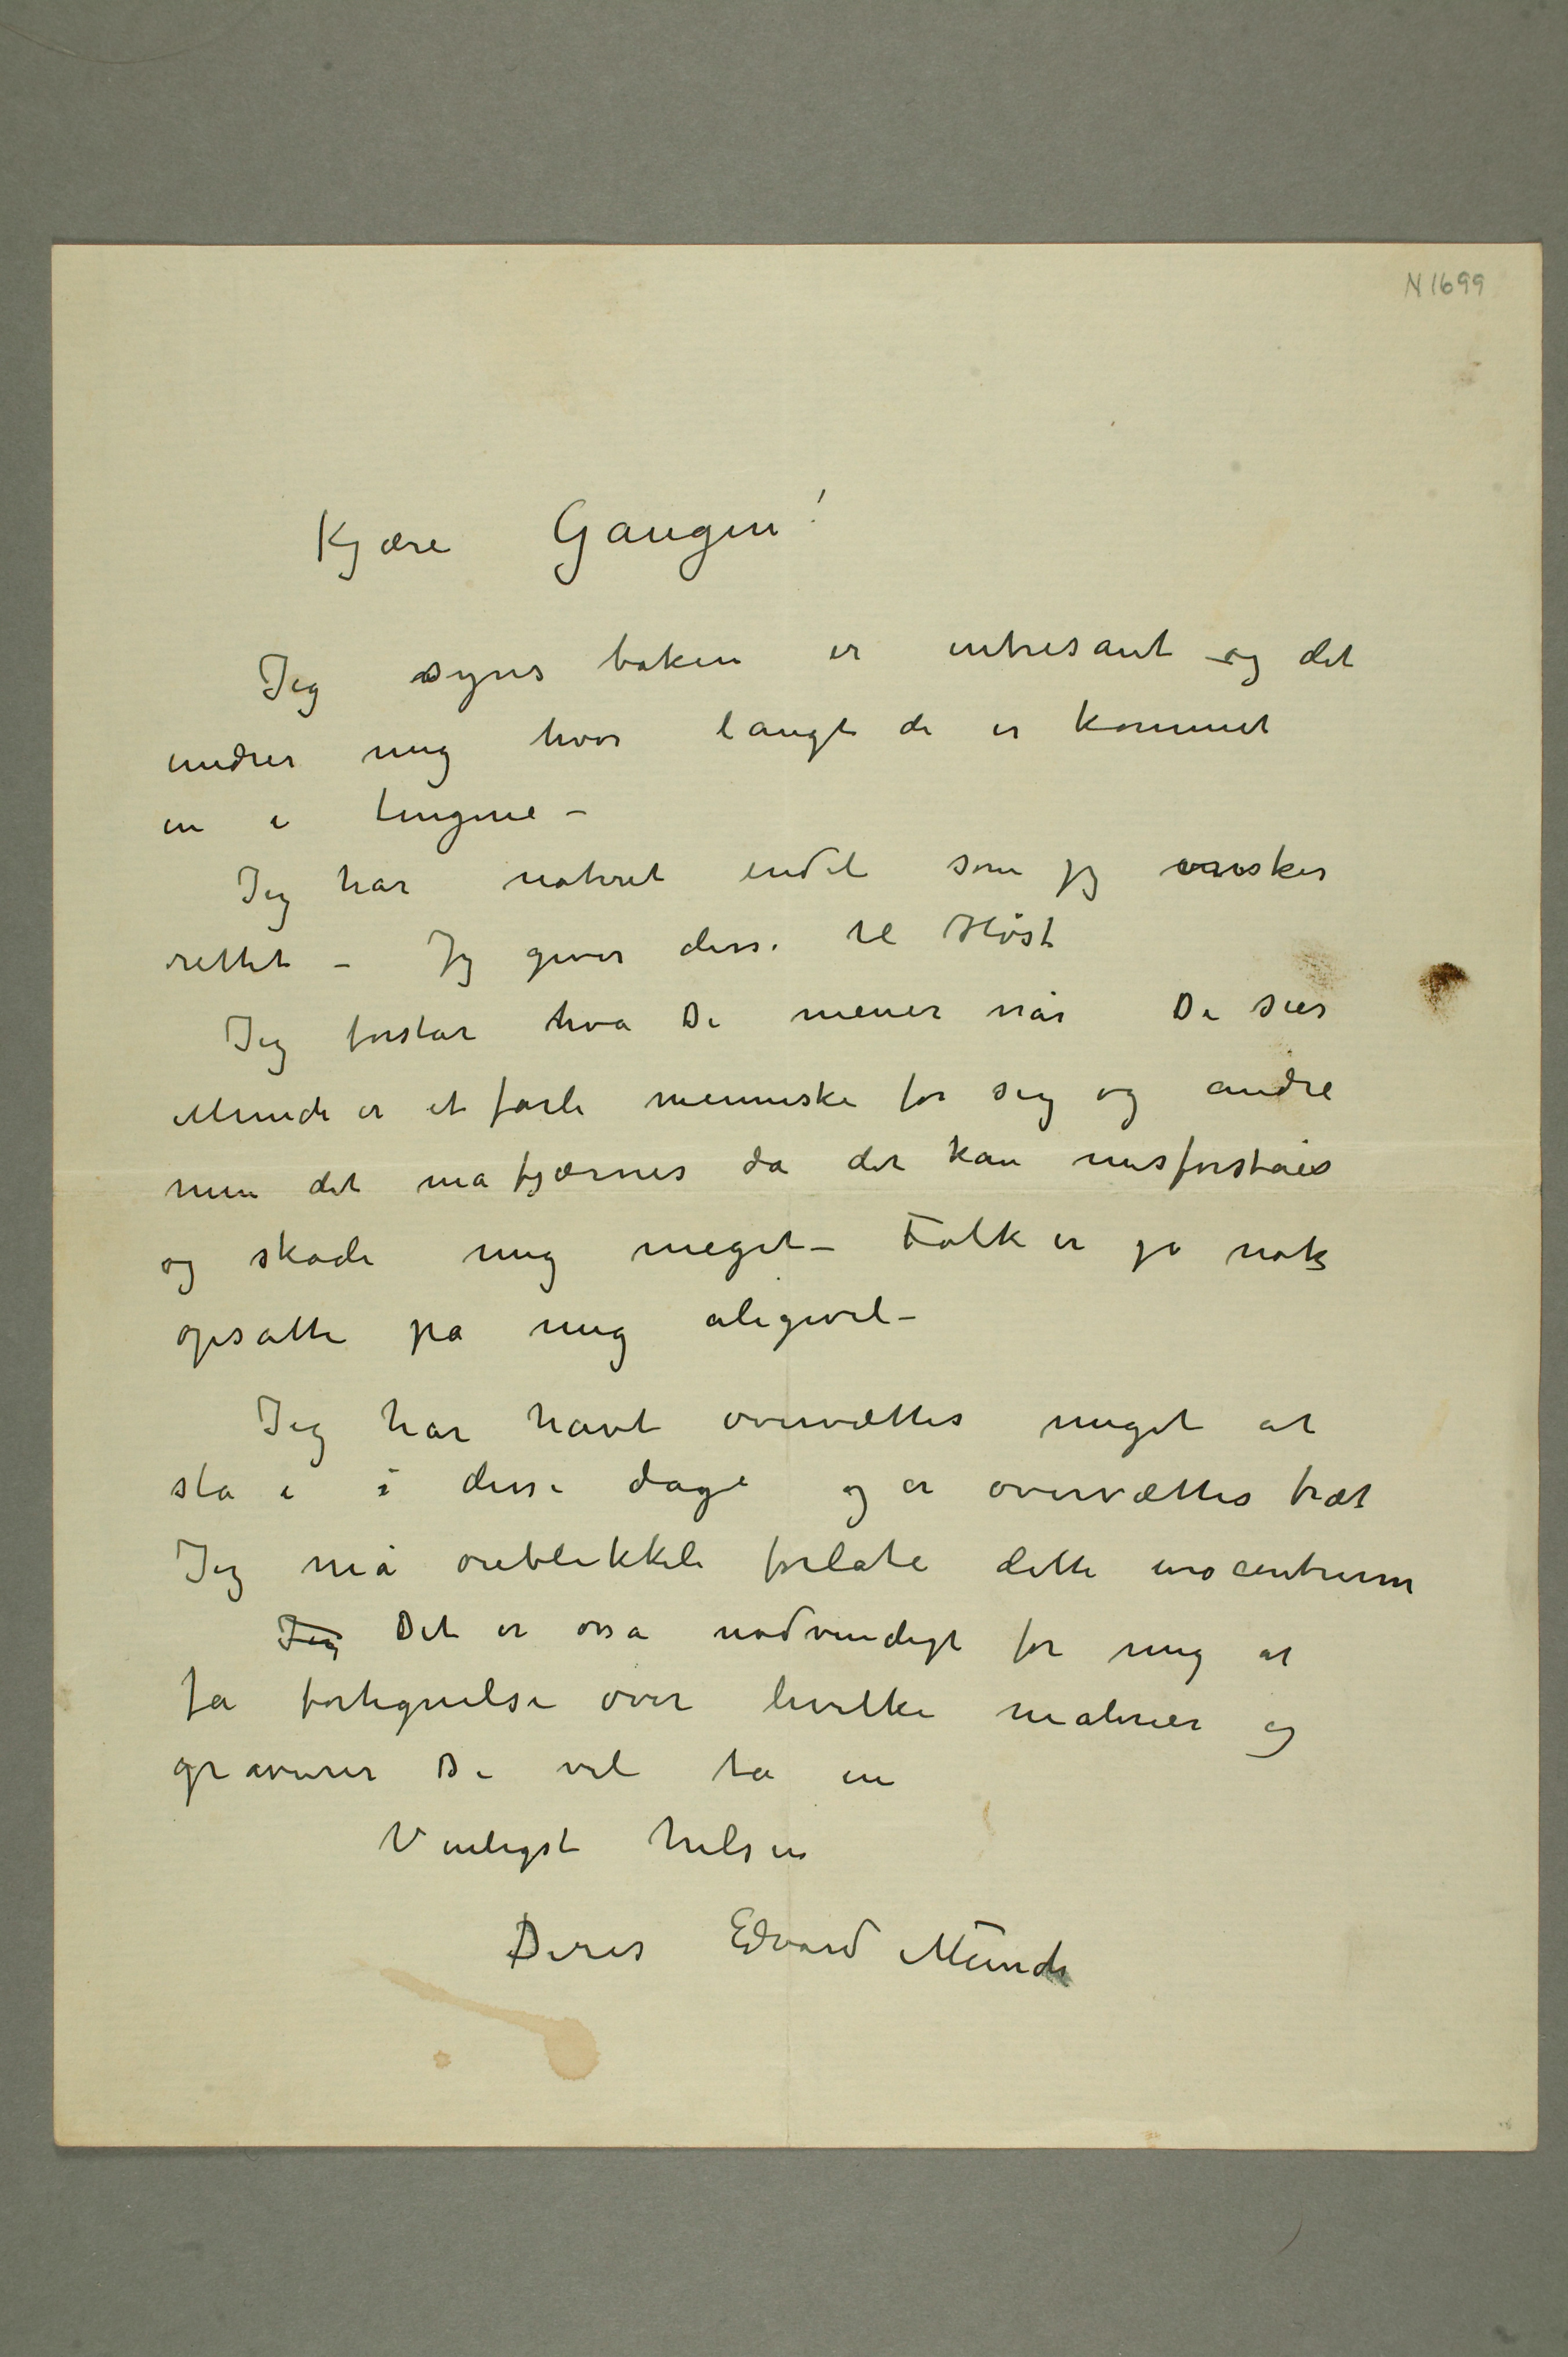 N 1699
Kjære Gaugin!
Jeg synes boken er intresant og det
undrer mig hvor langt de er kommet
in i tingene –
Jeg har noteret endel som jeg ønsker
rettet – Jeg giver disse til Høst
Jeg forstår hva De mener når De sier
Munch er et farli menneske for sig og andre
men det må fjærnes da det kan misforståes
og skade mig meget – Folk er jo nok
opsatte på mig aligevel –
Jeg har havt overvættes meget at
stå i i disse dage og er overvættes træt
Jeg må øieblikkeli forlate dette urocentrum
Jeg Det er osså nødvendigt for mig at
få fortegnelse over hvilke malerier og
gravurer De vil ta in
Venligst hilsen
Deres Edvard Munch